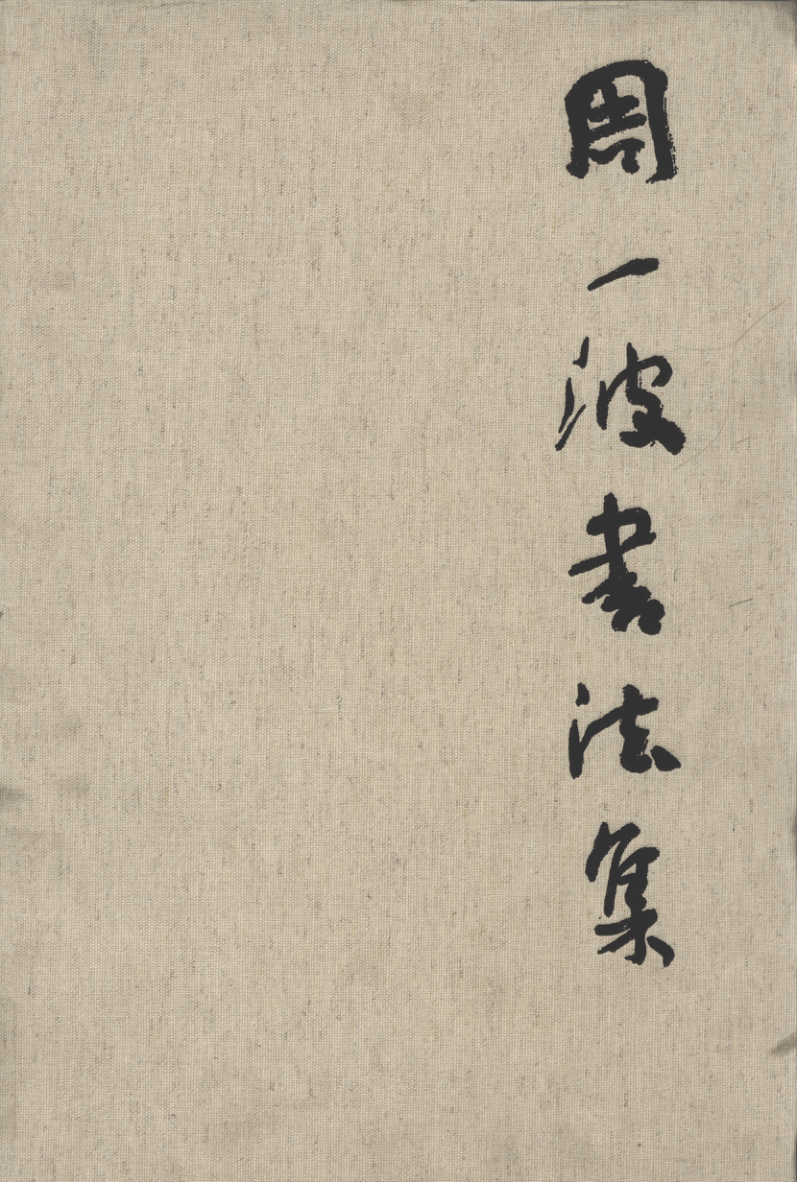 周一波書法集